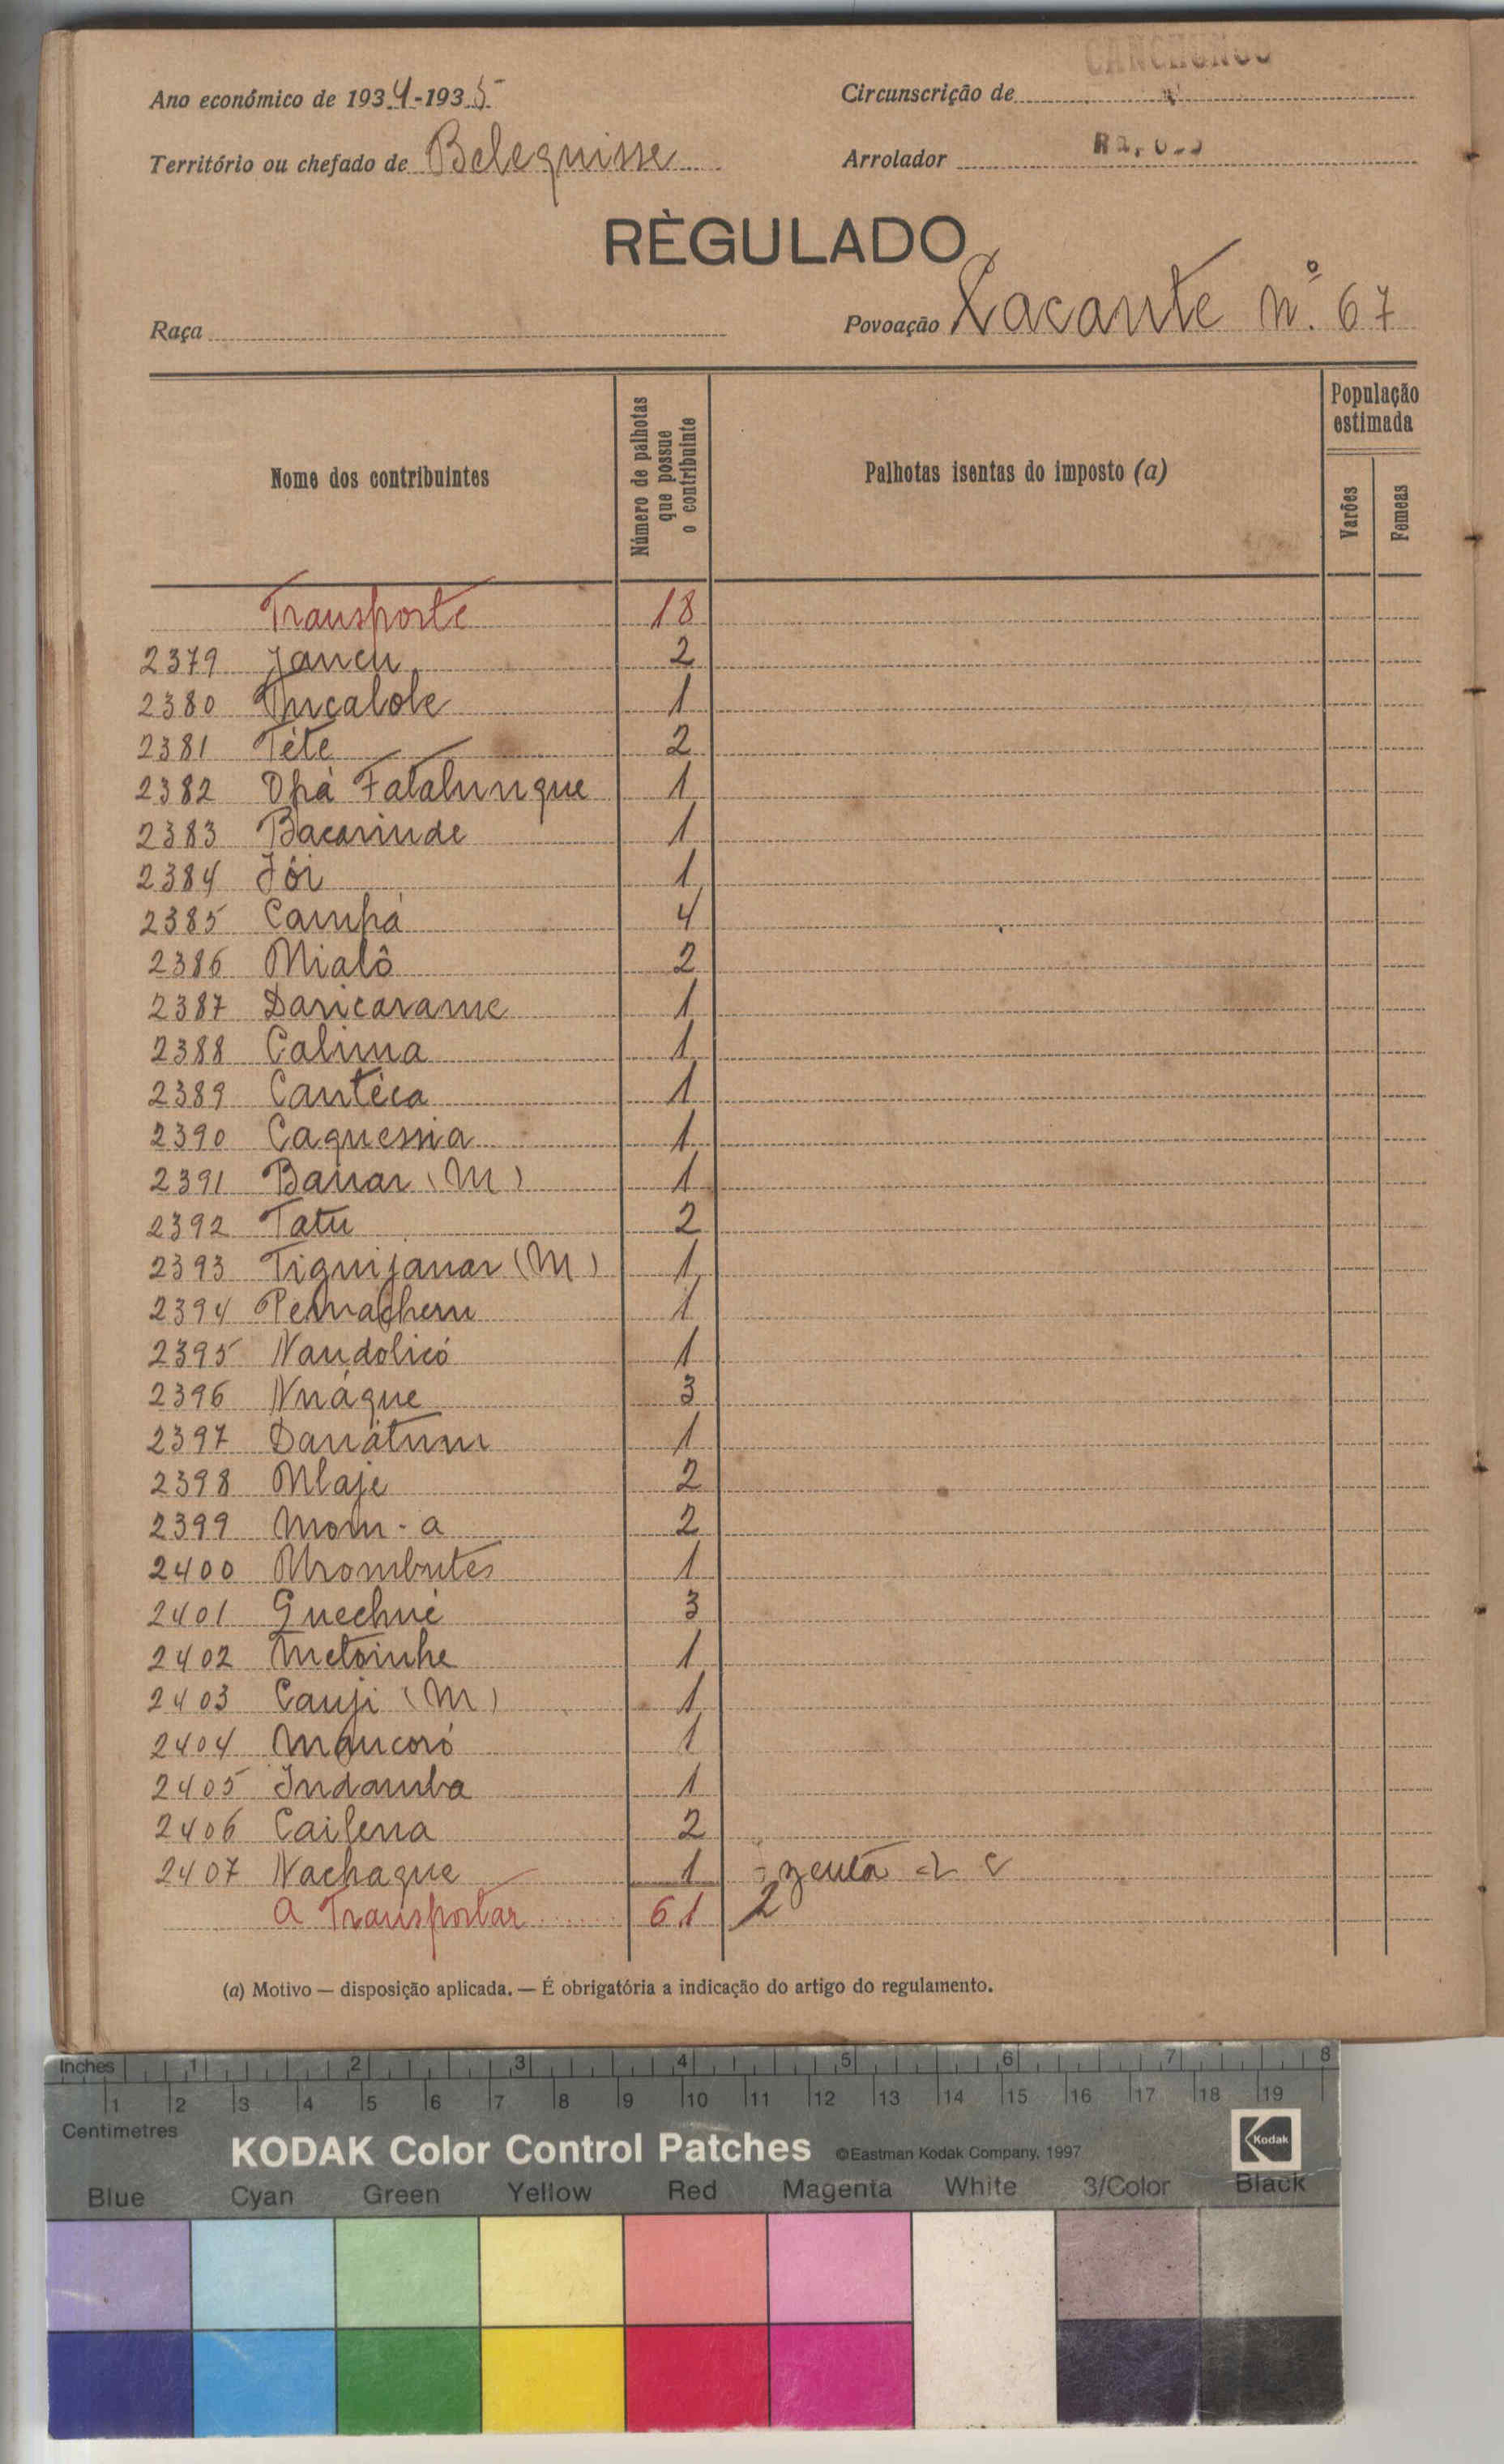 CANCHUNGO
Ano económico de 1934-1935
Circunscrição de
Território ou chefado de Belequisse
Arrolador
RÈGULADO
Raça
Povoação Lacante nº. 67
Nome dos contribuintes
Número de palhotas que possue o contribuinte
Palhotas isentas do imposto (a)
População estimada
Varões
Femeas
Transporte 18
2379 Jancu 2
2380 Incalole 1
2381 Tété 2
2382 Opá Fatalunque 1
2383 Bacarinde 1
2384 Jói 1
2385 Campá 4
2386 Mialô 2
2387 Daricarame 1
2388 Calima 1
2389 Cantéca 1
2390 Caquessia 1
2391 Banar (M) 1
2392 Tatu 2
2393 Tiguijanar (M) 1
2394 Pemachem 1
2395 Nandolicó 1
2396 Nnáque 3
2397 Danátum 1
2398 Mlaje 2
2399 Mom-a 2
2400 Nrombutes 1
2401 Guechué 3
2402 Metoinhe 1
2403 Cauji (M) 1
2404 Mancoró 1
2405 Indamba 1
2406 Cailena 2
2407 Nachaque 1
A Transportar 61 2
(a) Motivo — disposição aplicada. — É obrigatória a indicação do artigo do regulamento.
Inches 1 2 3 4 5 6 7 8
1 2 3 4 5 6 7 8 9 10 11 12 13 14 15 16 17 18 19
Centimetres
KODAK Color Control Patches ©Eastman Kodak Company, 1997 Kodak
Blue Cyan Green Yellow Red Magenta White 3/Color Black